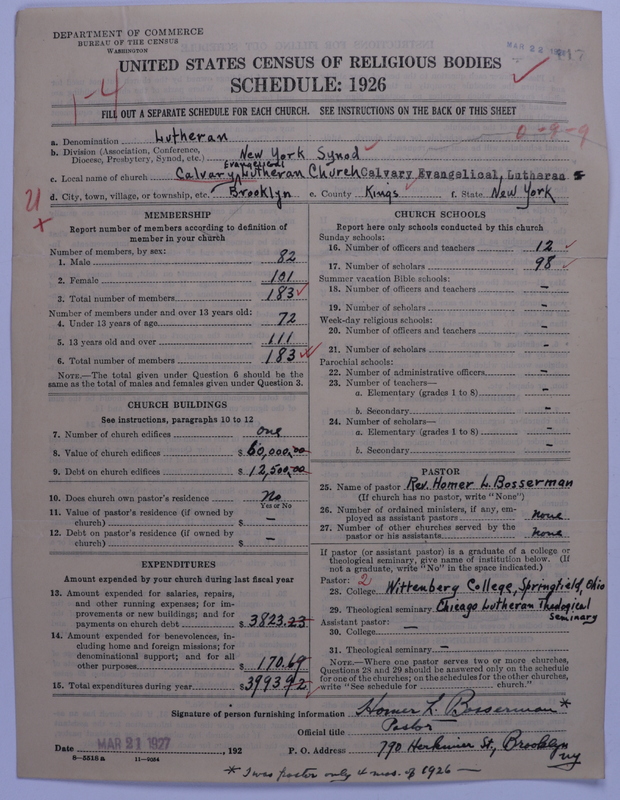 DEPARTMENT OF COMMERCE
BUREAU OF THE CENSUS
WASHINGTON
MAR 22 1927
UNITED STATES CENSUS OF RELIGIOUS BODIES
SCHEDULE: 1926
1-4
FILL OUT A SEPARATE SCHEDULE FOR EACH CHURCH. SEE INSTRUCTIONS ON THE BACK OF THIS SHEET
0-9-9
a. Denomination Lutheran
b. Division (Association, Conference, Diocese, Presbytery, Synod, etc.) New York Synod
c. Local name of church Calvary Evangelical Lutheran Church Calvary Evangelical, Lutheran
d. City, town, village, or township, etc. Brooklyn e. County Kings f. State New York
MEMBERSHIP
Report number of members according to definition of
member in your church
Number of members, by sex:
1. Male 82
2. Female 101
3. Total number of members 183
Number of members under and over 13 years old:
4. Under 13 years of age 72
5. 13 years old and over 111
6. Total number of members 183
NOTE.—The total given under Question 6 should be the
same as the total of males and females given under Question 3.
CHURCH BUILDINGS
See instructions, paragraphs 10 to 12
7. Number of church edifices one
8. Value of church edifices $ 60,000.00
9. Debt on church edifices $ 12,500.00
10. Does church own pastor's residence No
Yes or No
11. Value of pastor's residence (if owned by
church) $ —
12. Debt on pastor's residence (if owned by
church) $ —
EXPENDITURES
Amount expended by your church during last fiscal year
13. Amount expended for salaries, repairs,
and other running expenses; for im-
provements or new buildings; and for
payments on church debt $ 3823.23
14. Amount expended for benevolences, in-
cluding home and foreign missions; for
denominational support; and for all
other purposes $ 170.69
15. Total expenditures during year $ 3993.92
CHURCH SCHOOLS
Report here only schools conducted by this church
Sunday schools:
16. Number of officers and teachers 12
17. Number of scholars 98
Summer vacation Bible schools:
18. Number of officers and teachers —
19. Number of scholars —
Week-day religious schools:
20. Number of officers and teachers —
21. Number of scholars —
Parochial schools:
22. Number of administrative officers —
23. Number of teachers—
a. Elementary (grades 1 to 8) —
b. Secondary —
24. Number of scholars—
a. Elementary (grades 1 to 8) —
b. Secondary —
PASTOR
25. Name of pastor Rev. Homer L. Bosserman
(If church has no pastor, write "None")
26. Number of ordained ministers, if any, em-
ployed as assistant pastors none
27. Number of other churches served by the
pastor or his assistants none
If pastor (or assistant pastor) is a graduate of a college or
theological seminary, give name of institution below. (If
not a graduate, write "No" in the space indicated.)
Pastor: 2
28. College Wittenberg College, Springfield, Ohio
29. Theological seminary Chicago Lutheran Theological Seminary
Assistant pastor:
30. College —
31. Theological seminary —
NOTE.—Where one pastor serves two or more churches,
Questions 28 and 29 should be answered only on the schedule
for one of the churches; on the schedules for the other churches,
write "See schedule for church."
Signature of person furnishing information Homer L. Bosserman *
Official title Pastor
Date MAR 21 1927, 192 P. O. Address 790 Herkimer St., Brooklyn
NY
8—5518 a 11—9054
* I was pastor only 4 mos. of 1926 —